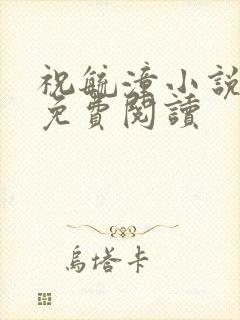 祝毓漳小說
免費閱讀
烏塔卡